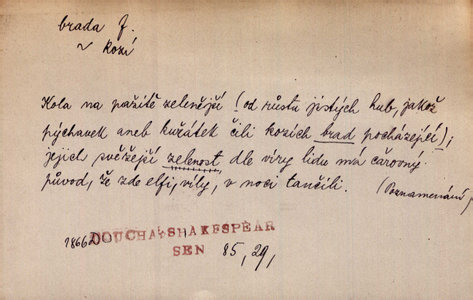 brada f.
~ kozí
Kola na pažitě zelenější (od růstu jistých hub, jakož
pýchavek aneb kuřátek čili kozích brad pocházející);
jejich svěžejší zelenost dle víry lidu má čarovný
původ, že zde elfi, víly, v noci tančili. (Poznamenání,
1866 DOUCHA, SHAKESPEAR
SEN 85, 29,